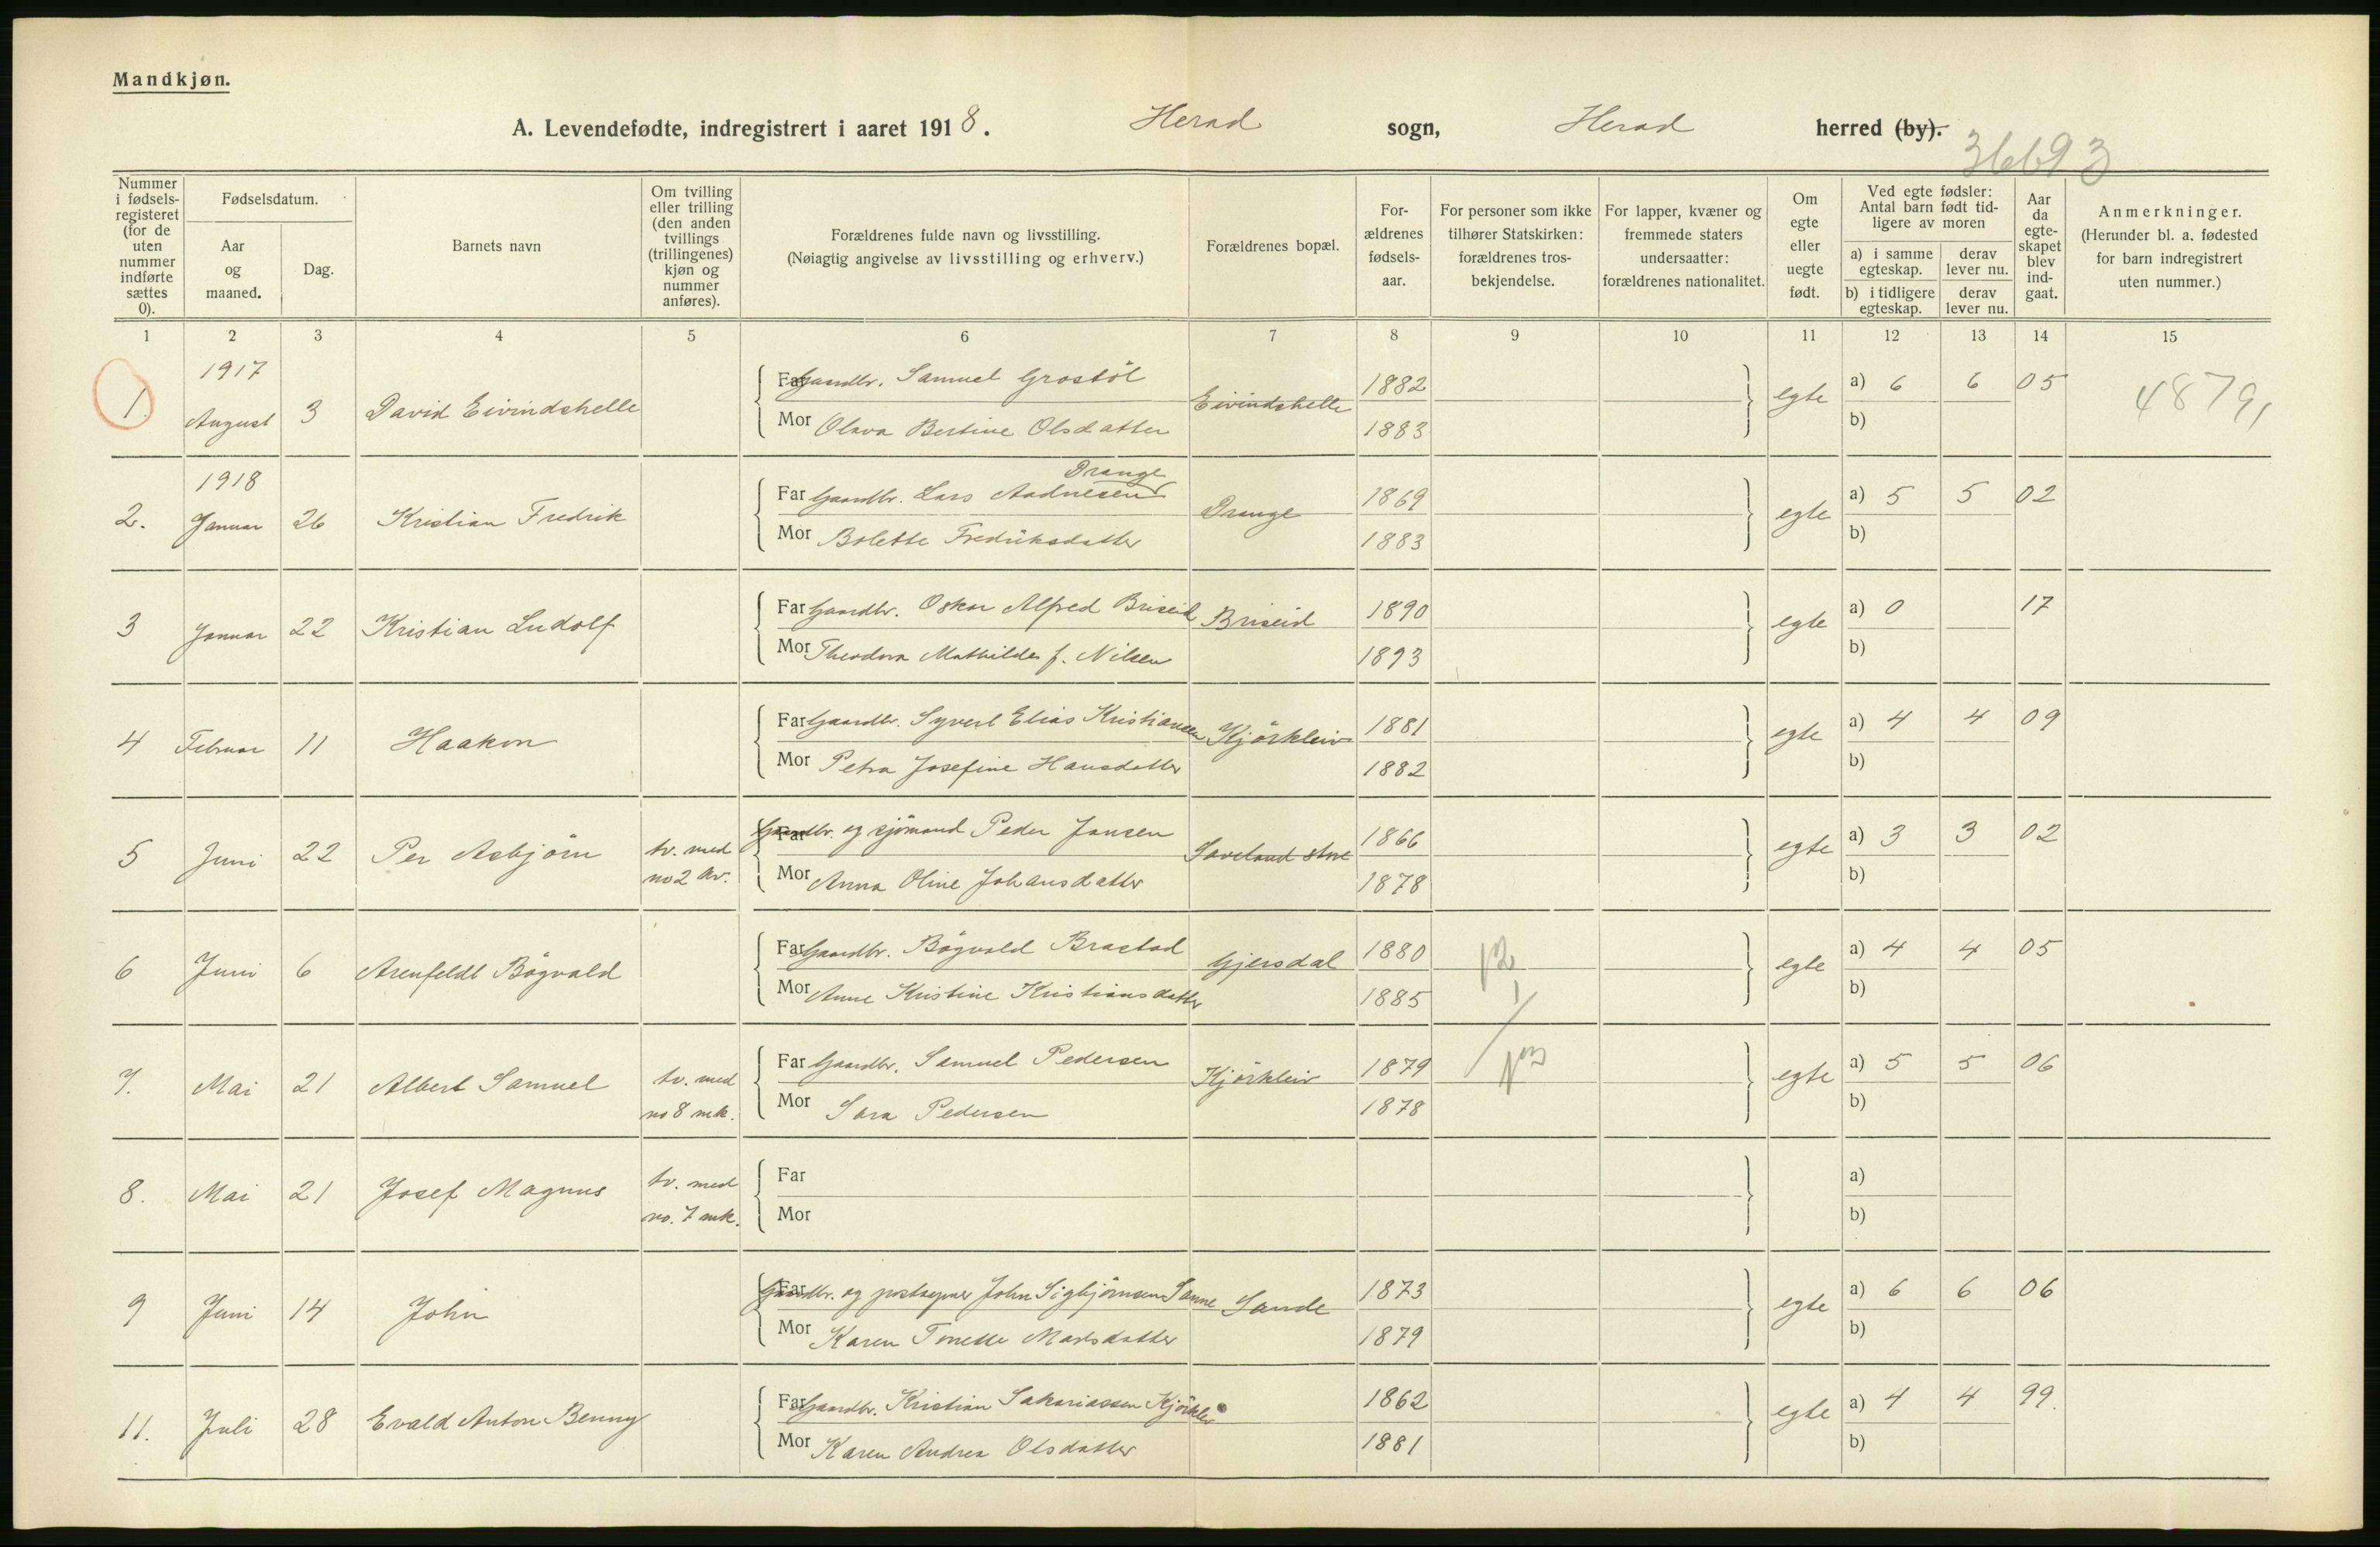 Mandkjøn.
A. Levendefødte, indregistrert i aaret 1918. Herad sogn, Herad herred (by).
36693
Nummer i fødsels-registeret (for de uten nummer indførte sættes 0).
Fødselsdatum.
Aar og maaned.
Dag.
Barnets navn
Om tvilling eller trilling (den anden tvillings (trillingenes) kjøn og nummer anføres).
Forældrenes fulde navn og livsstilling.
(Nøiagtig angivelse av livsstilling og erhverv.)
Forældrenes bopæl.
For-ældrenes fødsels-aar.
For personer som ikke tilhører Statskirken: forældrenes tros-bekjendelse.
For lapper, kvæner og fremmede staters undersaatter: forældrenes nationalitet.
Om egte eller uegte født.
Ved egte fødsler: Antal barn født tid-ligere av moren
a) i samme egteskap.
derav lever nu.
b) i tidligere egteskap.
derav lever nu.
Aar da egte-skapet blev ind-gaat.
Anmerkninger.
(Herunder bl. a. fødested for barn indregistrert uten nummer.)
1 2 3 4 5 6 7 8 9 10 11 12 13 14 15
1917
1. August 3 David Eivindshelle Far Gaardbr. Samuel Grostöl Eivindshelle 1882 egte a) 6 6 05 4879,
Mor Olava Bertine Olsdatter 1883 b)
1918
Drange
2. Januar 26 Kristian Fredrik Far Gaardbr. Lars Aadnesen Drange 1869 egte a) 5 5 02
Mor Bolette Fredriksdatter 1883 b)
3 Januar 22 Kristian Ludolf Far Gaardbr. Oskar Alfred Briseid Briseid 1890 egte a) 0 17
Mor Theodora Mathilde f. Nilsen 1893 b)
4 Februar 11 Haakon Far Gaardbr. Syvert Elias Kristiansen Kjörkleiv 1881 egte a) 4 4 09
Mor Petra Josefine Hansdatter 1882 b)
5 Juni 22 Per Asbjörn tv. med Far Gaardbr. og sjömand Peder Jansen Saveland store 1866 egte a) 3 3 02
no 2 kv. Mor Anna Oline Johansdatter 1878 b)
6 Juni 6 Arenfeldt Bögvald Far Gaardbr. Bögvald Brastad Gjersdal 1880 egte a) 4 4 05
Mor Anne Kristine Kristiansdatter 1885 b)
7. Mai 21 Albert Samuel tv. med Far Gaardbr. Samuel Pedersen Kjörkleiv 1879 egte a) 5 5 06
no 8 mk. Mor Sara Pedersen 1878 b)
8. Mai 21 Josef Magnus tv. med Far a)
no. 7 mk. Mor b)
9 Juni 14 John Far Gaardbr. og John Sigbjörnsen Sanne Sande 1873 egte a) 6 6 06
Mor Karen Tonette 1879 b)
11. Juli 28 Evald Anton Benny Far Gaardbr. Kristian Sakariassen Kjörkleiv 1862 egte a) 4 4 99.
Mor Karen Andrea Olsdatter 1881 b)